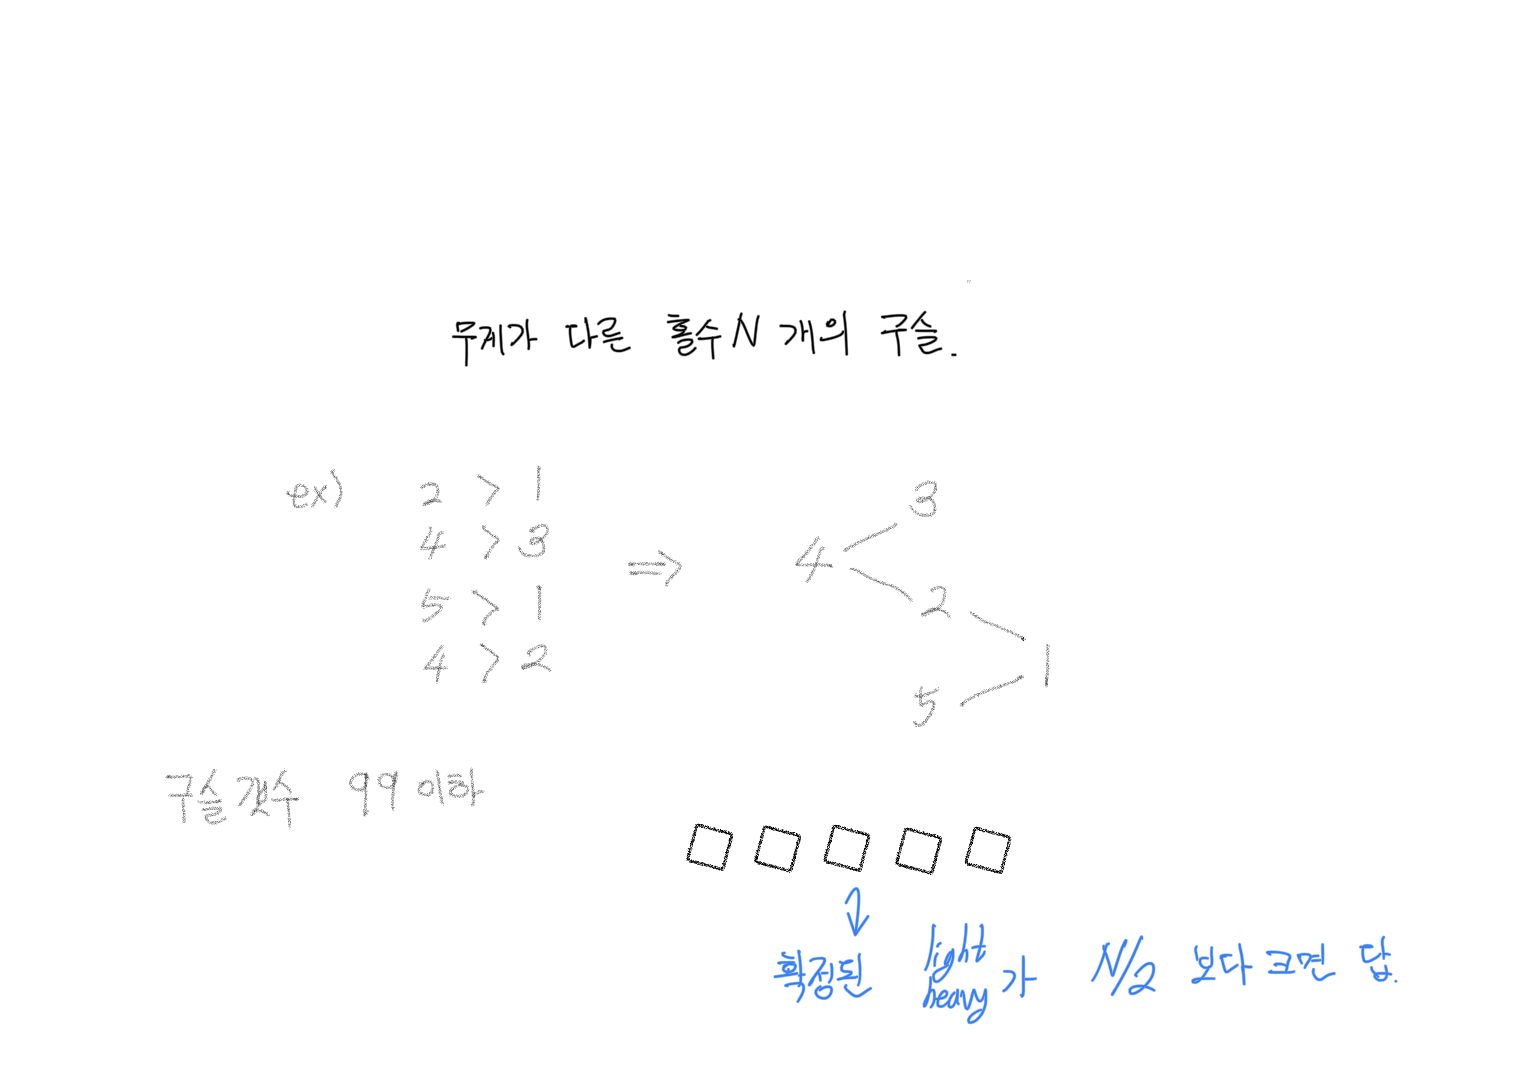 무게가 다른 홀수 N 개의 구슬.
ex) 2 > 1
4 > 3
5 > 1
4 > 2
⇒
3
4
2
1
5
구슬 갯수 99 이하
확정된 light heavy 가 N/2 보다 크면 답.